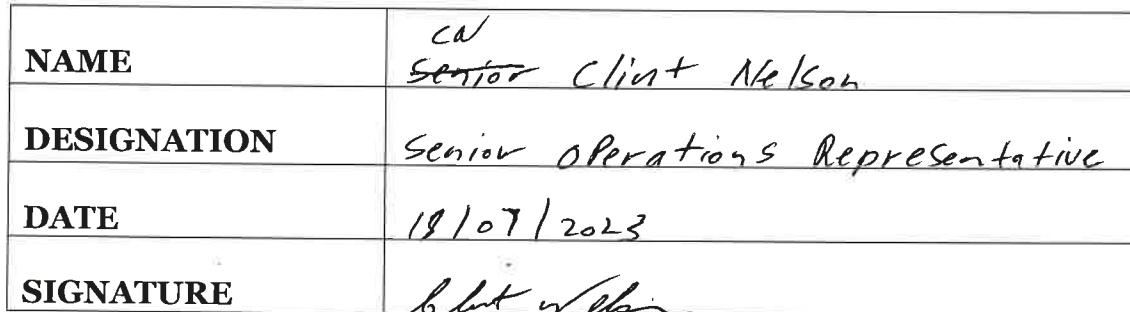 CN
NAME Senior Clint Nelson
DESIGNATION Senior Operations Representative
DATE 18/07/2023
SIGNATURE